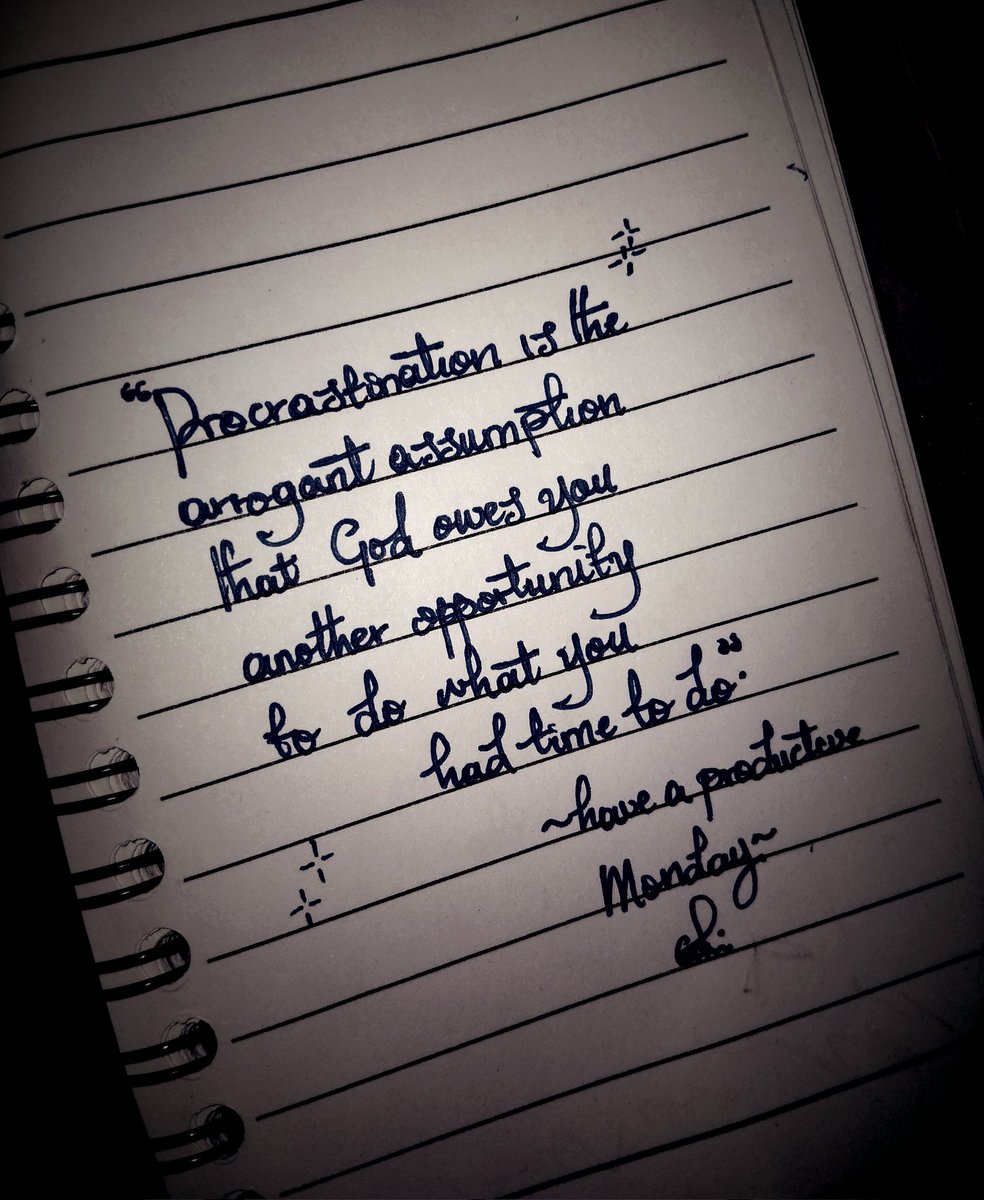 “Procrastination is the
arrogant assumption
that God owes you
another opportunity
to do what you
had time to do.”
~have a productive
Monday~